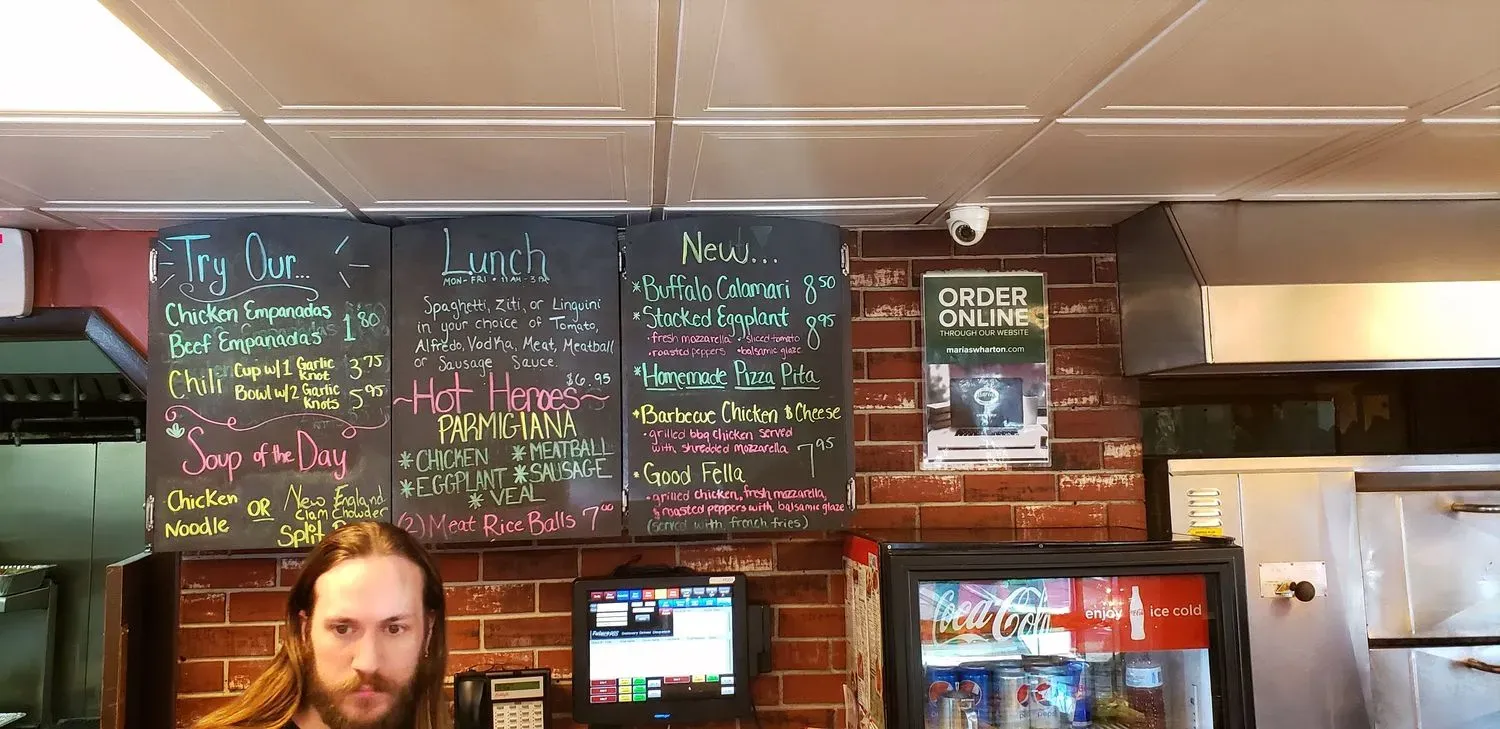 Try Our...
Chicken Empanadas
Beef Empanadas
1 80
Chili
Cup w/1 Garlic Knot 3 75
Bowl w/2 Garlic Knots 5 95
Soup of the Day
Chicken Noodle
OR
New England Clam Chowder
Split
Lunch
MON-FRI • 11AM-3
Spaghetti, Ziti, or Linguini
in your choice of Tomato,
Alfredo, Vodka, Meat, Meatball
or Sausage Sauce.
$6.95
~Hot Heroes~
PARMIGIANA
*CHICKEN *MEATBALL
*EGGPLANT *SAUSAGE
*VEAL
(2) Meat Rice Balls 7 00
New...
*Buffalo Calamari 8 50
*Stacked Eggplant 8 95
•fresh mozzarella •sliced tomato
•roasted peppers •balsamic glaze
*Homemade Pizza Pita
*Barbecue Chicken & Cheese
•grilled bbq chicken served
with shredded mozzarella
7 95
•Good Fella
•grilled chicken, fresh mozzarella,
& roasted peppers with balsamic glaze
(served with french fries)
ORDER
ONLINE
THROUGH OUR WEBSITE
mariaswharton.com
Coca Cola
enjoy
ice cold
pepsi